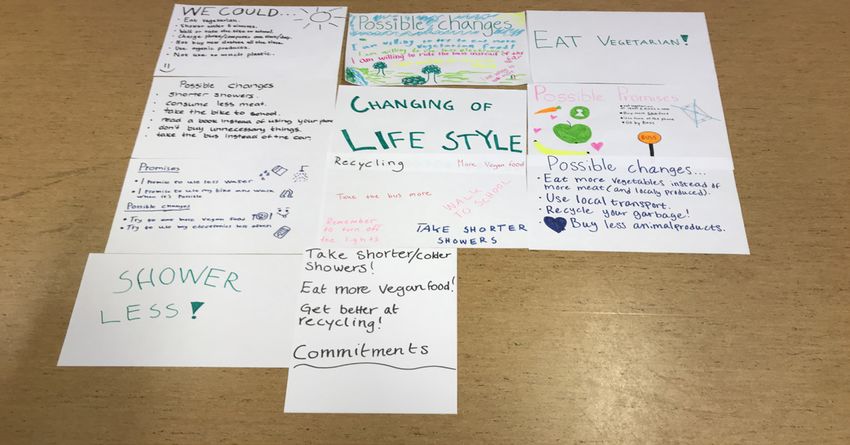 WE COULD...
• Eat vegetarian.
• Shower under 5 minutes.
• Walk or take the bike to school.
• Not buy new clothes all the time.
• Use organic products.
• Not use to much plastic.
Possible changes
I am willing to eat more
vegetarian food!
I am willing to ride the bus instead of my car
EAT VEGETARIAN!
Possible changes
• shorter showers.
• consume less meat.
• take the bike to school.
• read a book instead of using your phone
• don't buy unnecessary things.
• take the bus instead of the car.
CHANGING OF
LIFE STYLE
Possible Promises
• Go by buss
BUSS
Promises
• I promise to use less water
• I promise to use my bike and walk
when it's possible
Possible changes
• Try to eat more vegan food
• Try to use my electronics less often
Recycling
More Vegan food
Take the bus more
WALK
TO SCHOOL
Remember
to turn off
the lights
TAKE SHORTER
SHOWERS
Possible changes...
• Eat more vegetables instead of
more meat (and localy produced).
• Use local transport.
• Recycle your garbage!
Buy less animalproducts.
SHOWER
LESS!
Take shorter/colder
showers!
Eat more vegan food!
Get better at
recycling!
Commitments